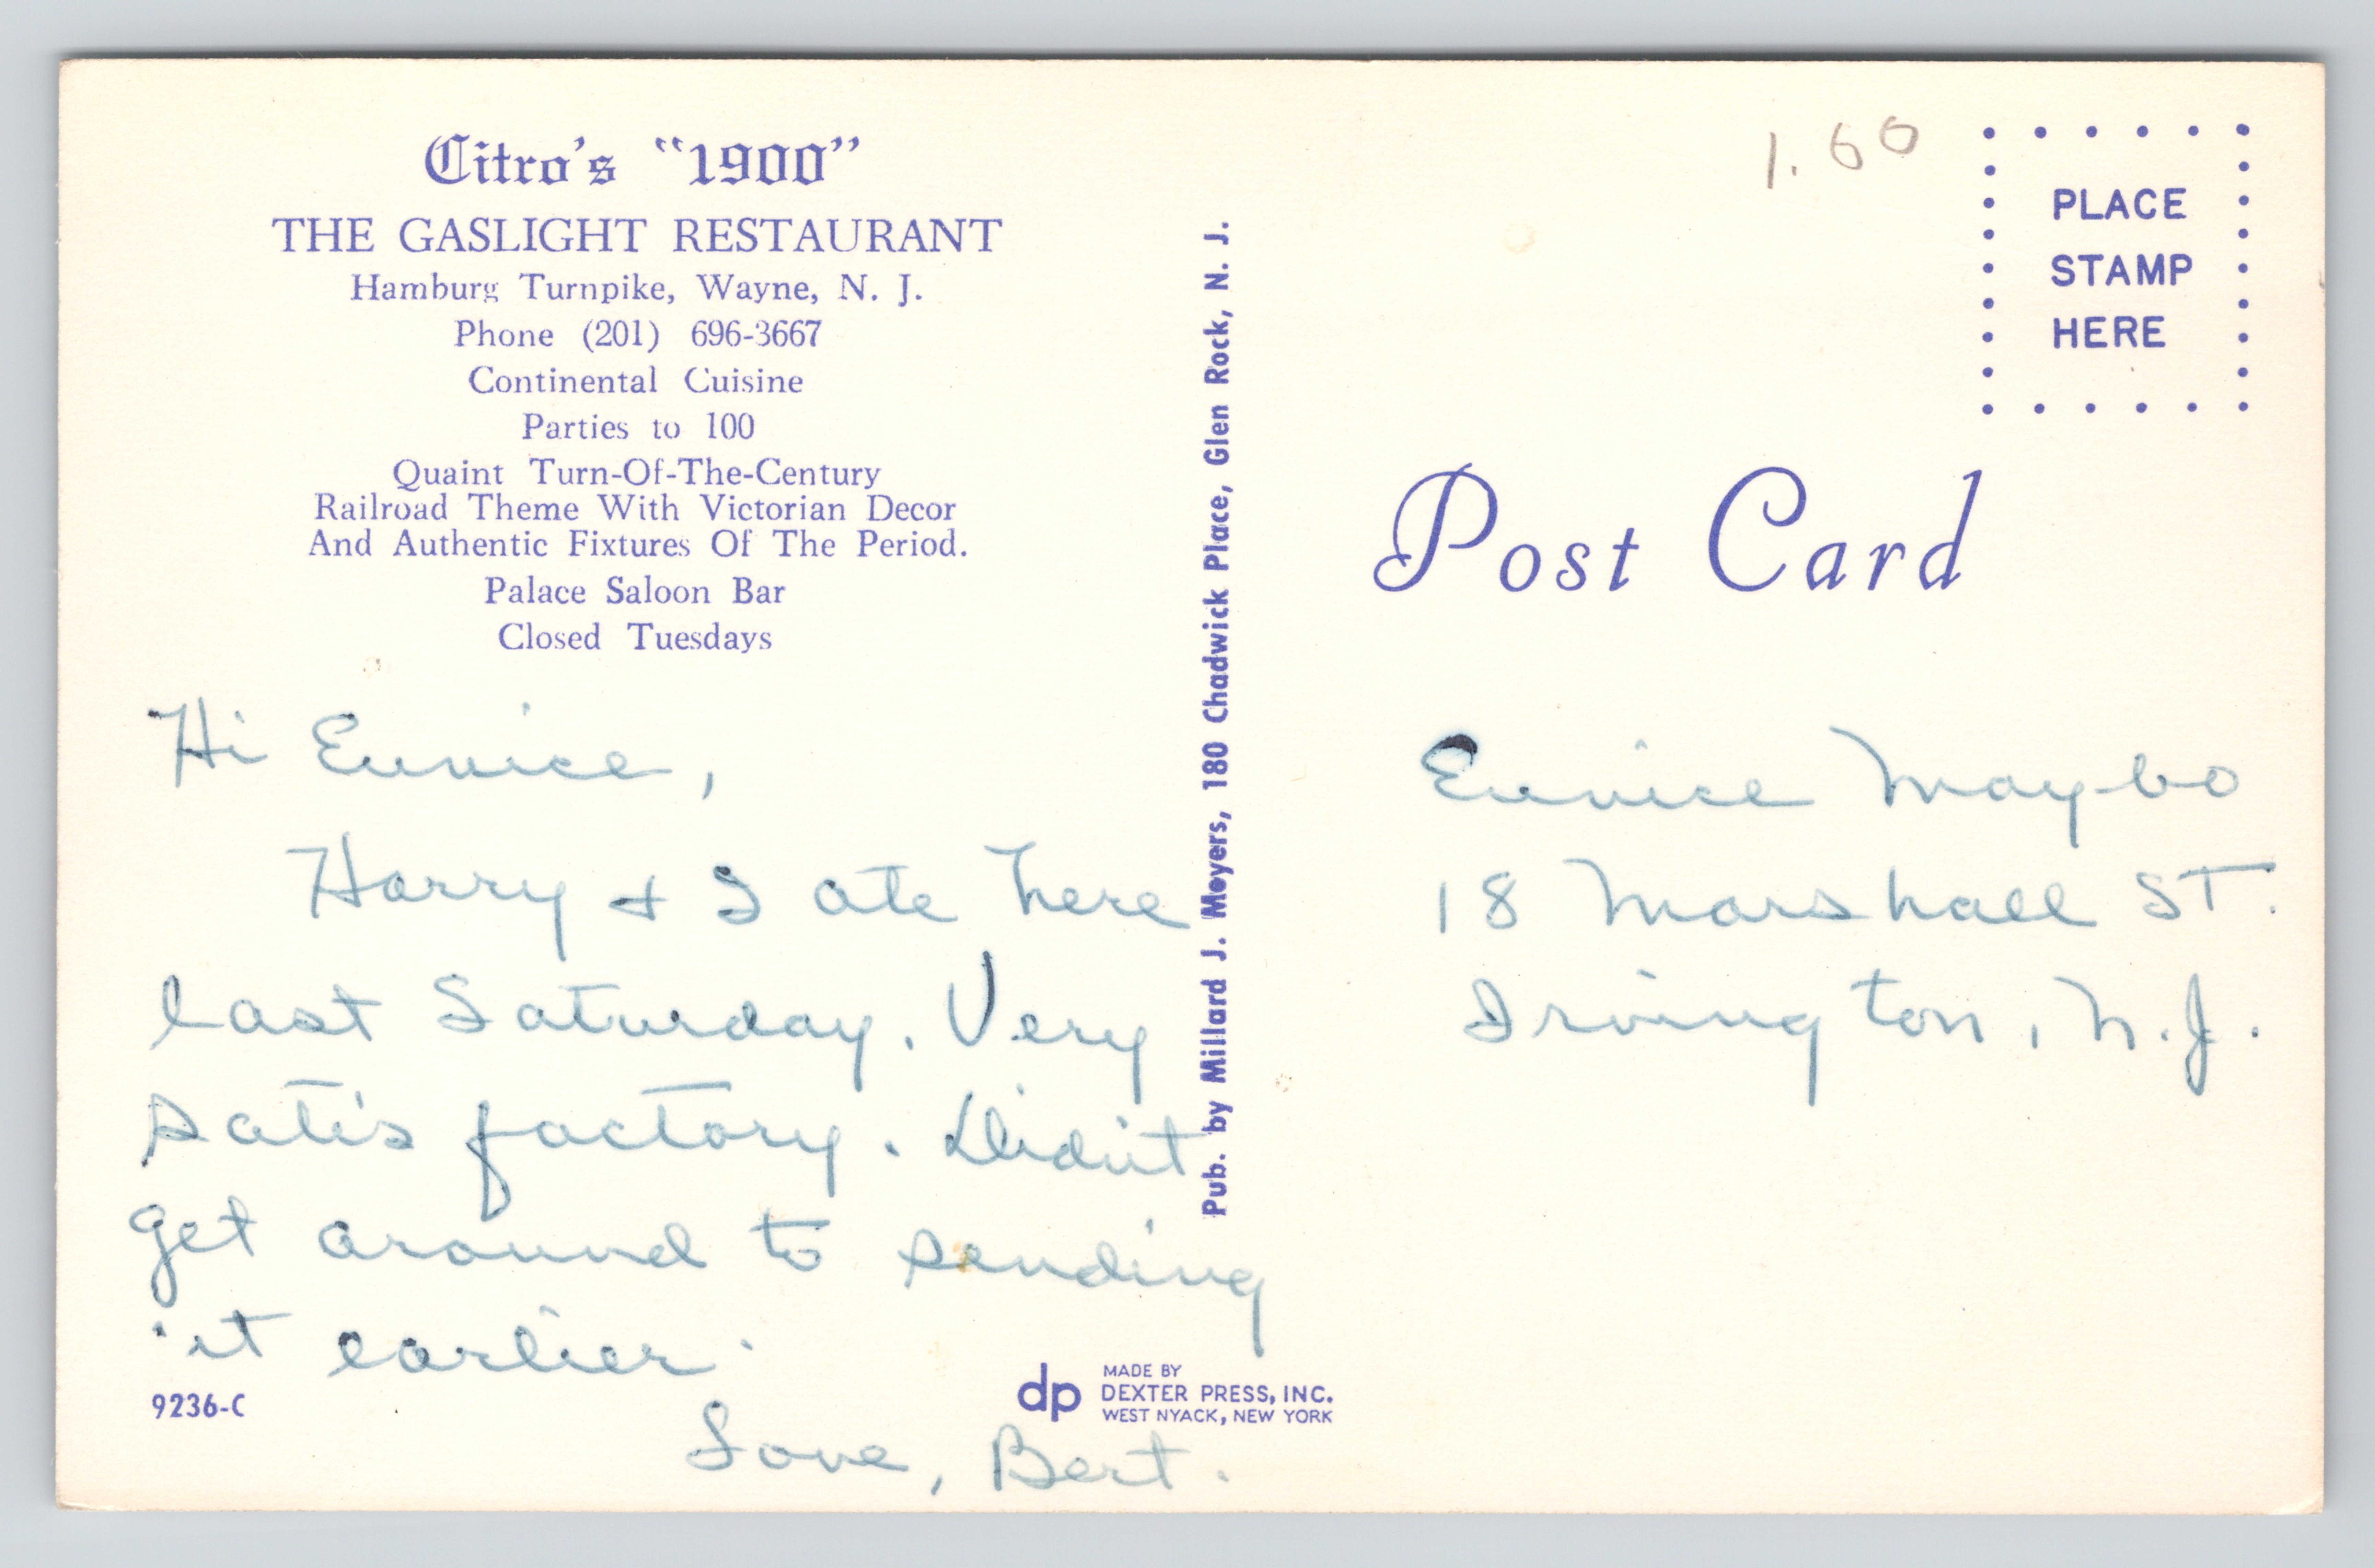 Citro's "1900"
THE GASLIGHT RESTAURANT
Hamburg Turnpike, Wayne, N. J.
Phone (201) 696-3667
Continental Cuisine
Parties to 100
Quaint Turn-Of-The-Century
Railroad Theme With Victorian Decor
And Authentic Fixtures Of The Period.
Palace Saloon Bar
Closed Tuesdays
Hi Eunice,
Harry + I ate here
last Saturday. Very
satisfactory. Didn't
get around to sending
it earlier.
Love, Bert.
9236-C
dp
MADE BY
DEXTER PRESS, INC.
WEST NYACK, NEW YORK
Pub. by Millard J. Meyers, 180 Chadwick Place, Glen Rock, N. J.
1.60
PLACE
STAMP
HERE
Post Card
Eunice Maybo
18 Marshall ST.
Irvington, N.J.